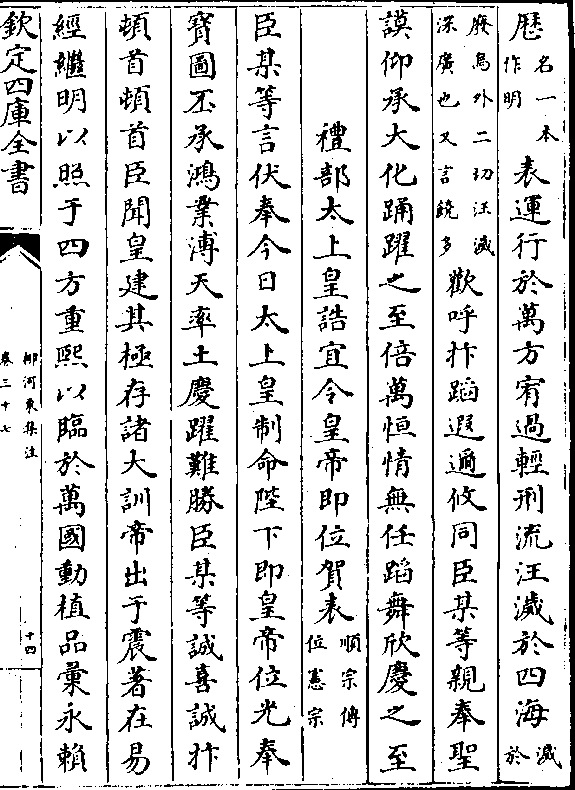 厯名一本作明表運行於萬方宥過輕刑流汪濊於四海濊於
廢烏外二切汪濊深廣也又言饒多歡呼抃蹈遐邇攸同臣某等親奉聖
謨仰承大化踊躍之至倍萬恒情無任蹈舞欣慶之至
禮部太上皇誥宜令皇帝即位賀表順宗傳位憲宗
臣某等言伏奉今日太上皇制命陛下即皇帝位光奉
寳圖丕承鴻業溥天率土慶躍難勝臣某等誠喜誠抃
頓首頓首臣聞皇建其極存諸大訓帝出于震著在易
經繼明以照于四方重熙以臨於萬國動植品彙永賴
欽定四庫全書
柳河東集注
卷三十七
十四